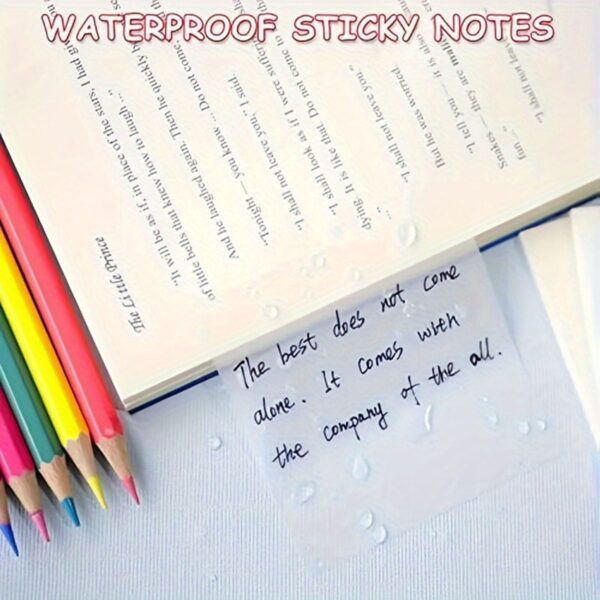 WATERPROOF STICKY NOTES
The Little Prince
"It will be as if, in place of the stars, I had
of little bells that knew how to laugh ..."
And he laughed again. Then he quickly
"Tonight — you know ... Do not come
"I shall not leave you," I said.
"I shall look as if I were
dying. It is like that. Do not come to
"I shall not leave you."
But he was worried.
"I tell you — it is also
Snakes — they are
fun
"I shall not leave
The best does not come
alone. It comes with
the company of the all.